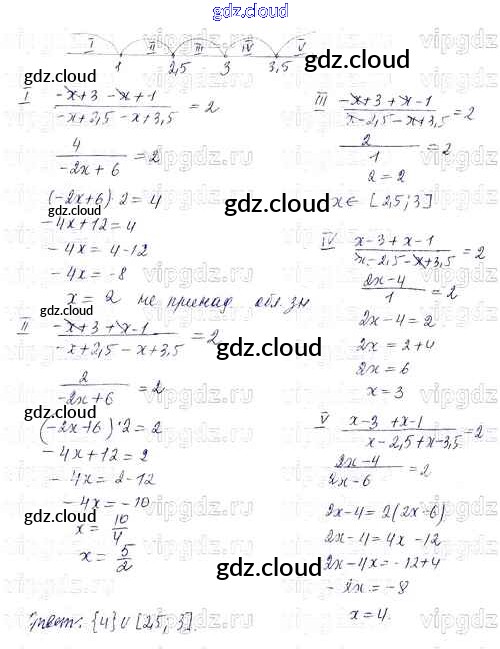 gdz.cloud
I II III IV V
1 2,5 3 3,5
gdz.cloud
I (-x+3-x+1)/(-x+2,5-x+3,5) = 2
4/(-2x+6) = 2
(-2x+6)·2=4
-4x+12=4
-4x=4-12
-4x=-8
x=2 не принад. обл. зн
II (-x+3+x-1)/(-x+2,5-x+3,5) = 2
2/(-2x+6) = 2
(-2x+6)·2=2
-4x+12=2
-4x=2-12
-4x=-10
x=10/4
x=5/2
III (-x+3+x-1)/(x-2,5-x+3,5) = 2
2/1 = 2
2=2
x∈[2,5;3]
IV (x-3+x-1)/(x-2,5-x+3,5) = 2
(2x-4)/1 = 2
2x-4=2
2x=2+4
2x=6
x=3
V (x-3+x-1)/(x-2,5+x-3,5) = 2
(2x-4)/(2x-6) = 2
2x-4=2(2x-6)
2x-4=4x-12
2x-4x=-12+4
-2x=-8
x=4.
Ответ: {4}∪[2,5;3].
gdz.cloud
gdz.cloud
gdz.cloud
gdz.cloud
gdz.cloud
gdz.cloud
gdz.cloud
gdz.cloud
gdz.cloud
vipgdz.ru